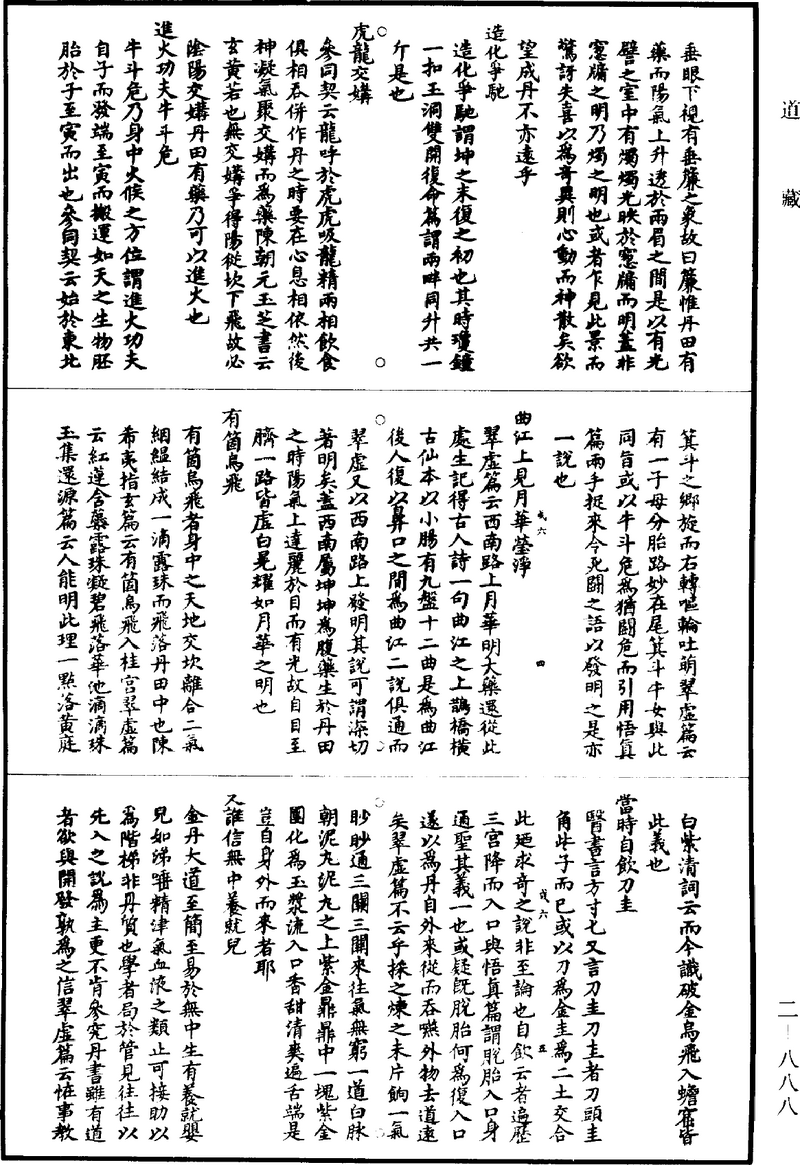 道藏
垂眼下視有垂簾之象故曰簾帷丹田有
藥而陽氣上升透於兩眉之間是以有光
譬之室中有燭燭光映於窻牖而明蓋非
窻牖之明乃燭之明也或者乍見此景而
驚訝失喜以爲奇異則心動而神散矣欲
望成丹不亦遠乎
造化爭馳
造化爭馳謂坤之末復之初也其時瓊鐘
一扣玉洞雙開復命篇謂兩畔同升共一
斤是也
虎龍交媾
參同契云龍呼於虎虎吸龍精兩相飲食
俱相吞併作丹之時要在心息相依然後
神凝氣聚交媾而爲藥陳朝元玉芝書云
玄黃若也無交媾爭得陽從坎下飛故必
陰陽交媾丹田有藥乃可以進火也
進火功夫牛斗危
牛斗危乃身中火候之方位謂進火功夫
自子而發端至寅而搬運如天之生物胚
胎於子至寅而出也參同契云始於東北
箕斗之鄉旋而右轉嘔輪吐萌翠虛篇云
有一子母分胎路妙在尾箕斗牛女與此
同旨或以牛斗危爲猶鬭危而引用悟眞
篇兩手捉來令死鬭之語以發明之是亦
一說也
曲江上見月華瑩淨
翠虛篇云西南路上月華明大藥還從此
處生記得古人詩一句曲江之上鵲橋橫
古仙本以小腸有九盤十二曲是爲曲江
後人復以鼻口之間爲曲江二說俱通而
翠虛又以西南路上發明其說可謂深切
著明矣蓋西南屬坤坤爲腹藥生於丹田
之時陽氣上達麗於目而有光故自目至
臍一路皆虛白晃耀如月華之明也
有箇烏飛
有箇烏飛者身中之天地交坎離合二氣
絪緼結成一滴露珠而飛落丹田中也陳
希夷指玄篇云有箇烏飛入桂宮翠虛篇
云紅蓮含藥露珠凝碧飛落華池滴滴珠
玉集還源篇云人能明此理一點落黃庭
白紫清詞云而今識破金烏飛入蟾窟皆
此義也
當時自飲刀圭
醫書言方寸匕又言刀圭刀圭者刀頭圭
角些子而已或以刀爲金圭爲二土交合
此廼求奇之說非至論也自飲云者遍歷
三宮降而入口與悟眞篇謂脫胎入口身
通聖其義一也或疑旣脫胎何爲復入口
遂以爲丹自外來從而吞嚥外物去道遠
矣翠虛篇不云乎採之煉之未片餉一氣
眇眇通三關三關來往氣無窮一道白脉
朝泥丸泥丸之上紫金鼎鼎中一塊紫金
團化爲玉漿流入口香甜清爽遍舌端是
豈自身外而來者耶
又誰信無中養就兒
金丹大道至簡至易於無中生有養就嬰
兒如涕唾精津氣血液之類止可接助以
爲階梯非丹質也學者局於管見往往以
先入之說爲主更不肯參究丹書雖有道
者欲與開發孰爲之信翠虛篇云怪事教
二－八八八